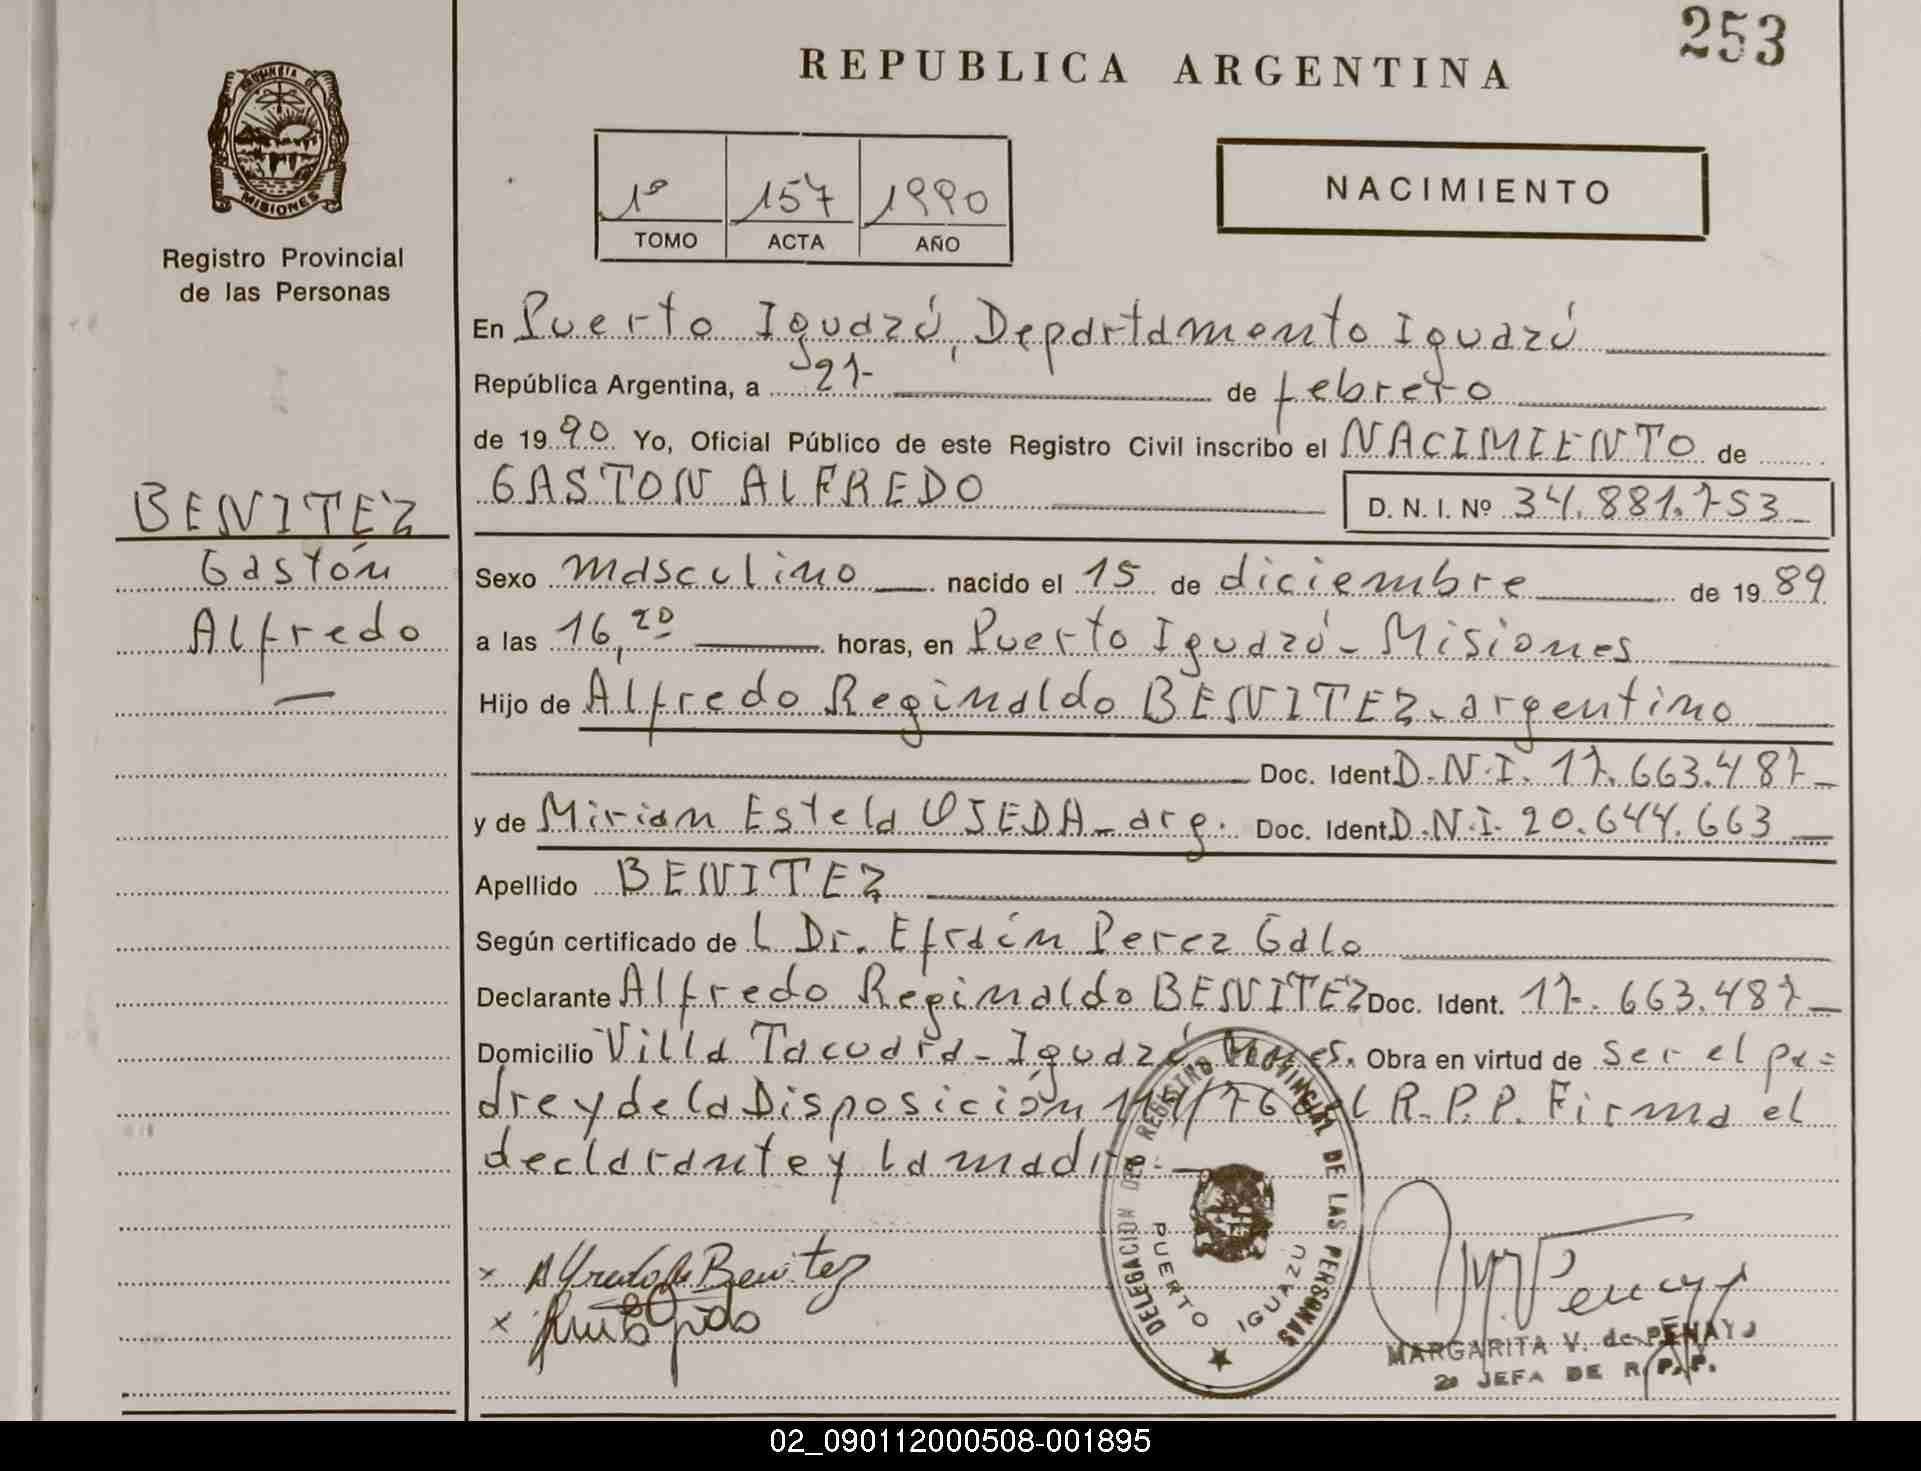 253
REPUBLICA ARGENTINA
PROVINCIA DE
MISIONES
Registro Provincial
de las Personas
1º 157 1990
TOMO ACTA AÑO
NACIMIENTO
En Puerto Iguazú, Departamento Iguazú
República Argentina, a 21- de febrero
de 1990 Yo, Oficial Público de este Registro Civil inscribo el NACIMIENTO de
GASTON ALFREDO D. N. I. Nº 34.881.753
BENITEZ
Gastón
Alfredo
Sexo masculino nacido el 15 de diciembre de 1989
a las 16,20 horas, en Puerto Iguazú - Misiones
Hijo de Alfredo Reginaldo BENITEZ - argentino
Doc. Ident. D.N.I. 17.663.487
y de Miriam Estela OJEDA - arg. Doc. Ident. D.N.I. 20.644.663
Apellido BENITEZ
Según certificado de l Dr. Efraín Perez Galo
Declarante Alfredo Reginaldo BENITEZ Doc. Ident. 17.663.487
Domicilio Villa Tacuara - Iguazú Mnes. Obra en virtud de ser el pa=
dre y de la Disposición /76 del R.P.P. Firma el
declarante y la madre.-
Alfredo R Benitez
DELEGACION DEL REGISTRO PROVINCIAL DE LAS PERSONAS
PUERTO IGUAZU
MARGARITA V. de PENAYO
2a JEFA DE R.P.P.
02_090112000508-001895